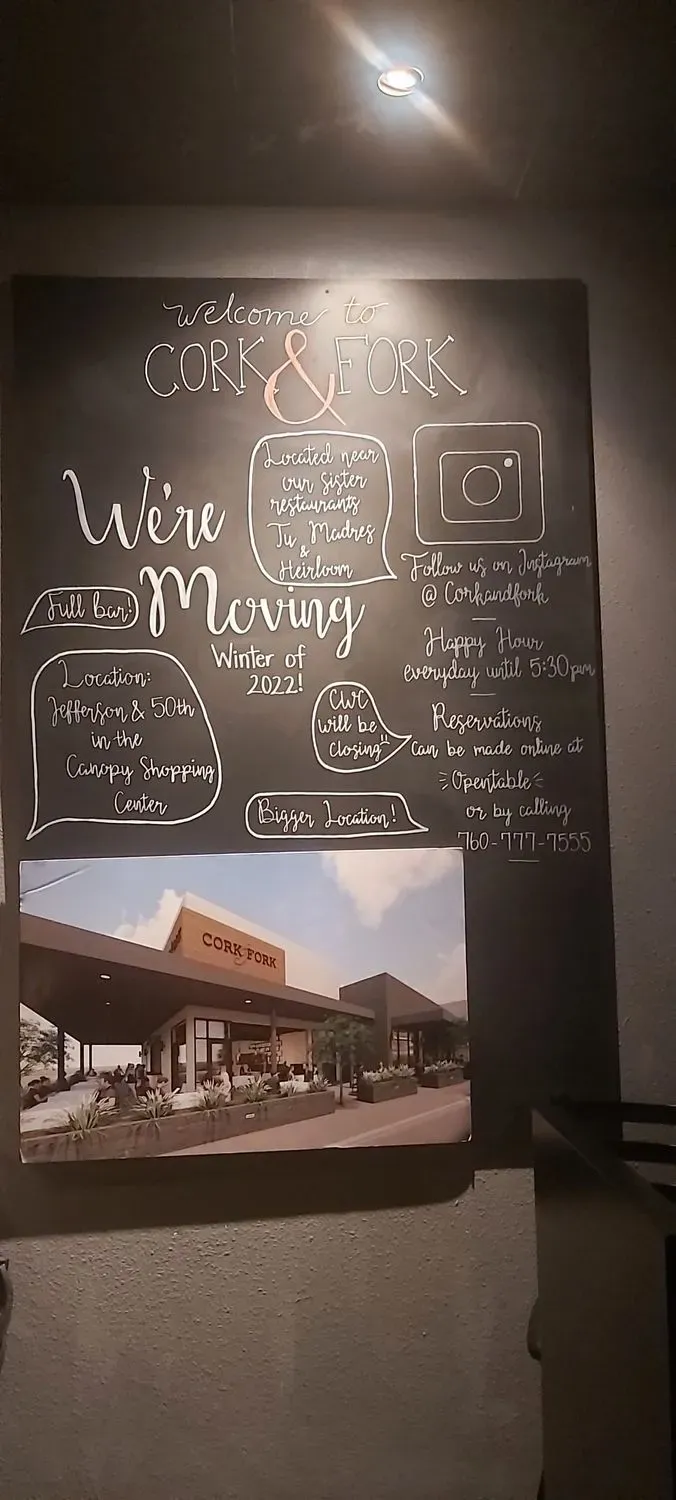 welcome to
CORK & FORK
We're
Moving
Winter of
2022!
Located near
our sister
restaurants
Tu Madres
&
Heirloom
Full bar!
Location:
Jefferson & 50th
in the
Canopy Shopping
Center
CWC
will be
closing
Bigger Location!
Follow us on Instagram
@ Corkandfork
Happy Hour
everyday until 5:30pm
Reservations
can be made online at
Opentable
or by calling
760-777-7555
CORK & FORK